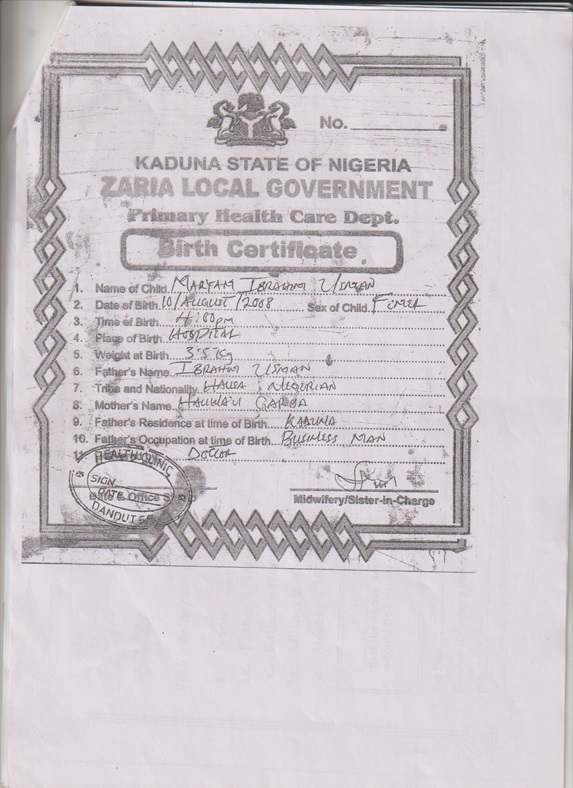 No.
KADUNA STATE OF NIGERIA
ZARIA LOCAL GOVERNMENT
Primary Health Care Dept.
Birth Certificate
1. Name of Child MARYAM IBRAHIM USMAN
2. Date of Birth 10/AUGUST/2008 Sex of Child
3. Time of Birth 4:00pm
4. Place of Birth HOSPITAL
5. Weight at Birth 3.5kg
6. Father's Name IBRAHIM USMAN
7. Tribe and Nationality HAUSA NIGERIAN
8. Mother's Name HAUWA'U GARBA
9. Father's Residence at time of Birth KADUNA
10. Father's Occupation at time of Birth BUSINESS MAN
11. DOCTOR
HEALTH CLINIC
SIGN
DATE
Date & Office
Midwifery/Sister-in-Charge